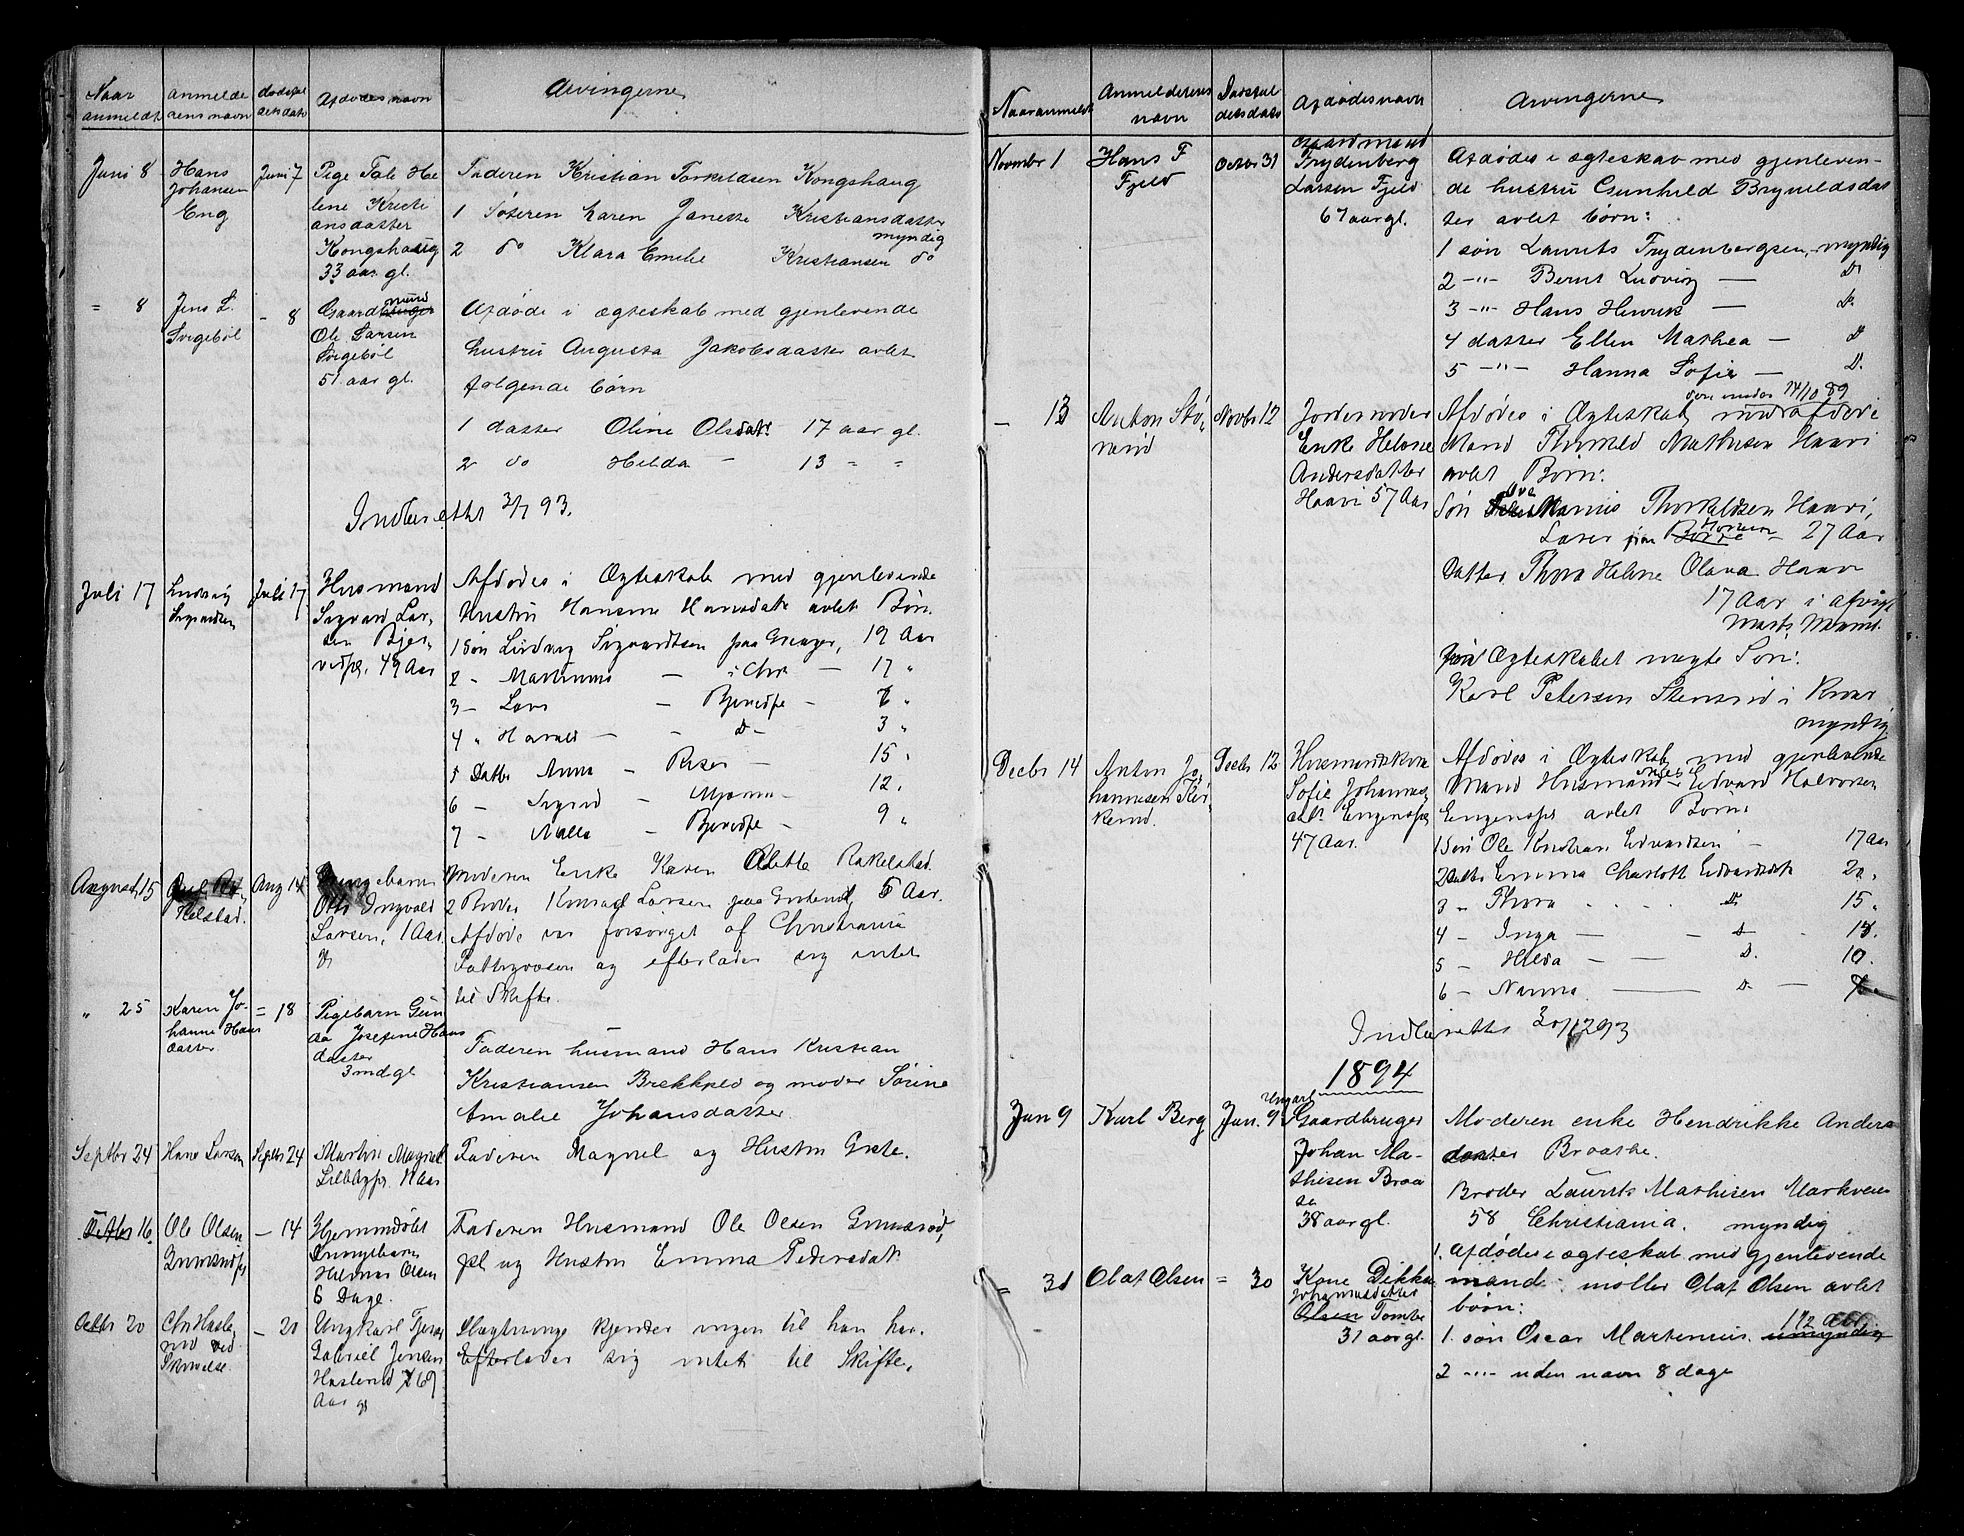 Naar anmeldt
anmelderens navn
dødsfaldets dato
Afdødes navn
Arvingerne
Juni 8
Hans
Johansen
Eng
Juni 7
Pige Tale He
lene Kristi
ansdatter
Kongshaug
33 aar gl.
Faderen Kristian Torkildsen Kongshaug
1 Søteren Karen Janette Kristiansdatter
myndig
2 do Klara Emelie Kristiansen do
= 8
Jens L.
Svigebøl
- 8
Gaardmand
Ole Larsen
Svigebøl
51 aar gl.
Afdøde i ægteskab med gjenlevende
hustru Augusta Jakobsdatter avlet
følgende børn
1 datter Oline Olsdatr 17 aar gl.
2 do Hilda - 13 " "
Indberettet 3/7 93.
Juli 17
Ludvig
Sigvardsen
Juli 17
Husmand
Sigvard Lar,
sen Bjer,
vedpl. 49 Aar
Afdødes i Ægteskab med gjenlevende
Hustru Hansine Hansdatr avlet Børn.
1 Søn Ludvig Sigvardtsen paa Granger, 19 Aar
2 - Martinius - i Chra - 17 "
3 - Lars - Bjervedpl - "
4 " Harald - - Do - 3 "
5 Datter Anna - Riser - 15 "
6 - Sigrid - - 12.
7 - - Bjervedpl - 9 "
August 15
Rakelstad.
Aug 14
Drengebarn
Otto Ingvald
Larsen, 1 Aar
gl
1 Moderen Enke Karen Olette Rakelstad
2 Broder Konrad Larsen paa 5 Aar.
Afdøde var forsørget af Christiania
Fattigvæsen og efterlader sig intet
til Skifte.
" 25
Karen Jo-
hanne Hans
datter
= 18
Pigebarn Gun
da Josefine Hans
datter
3 md gl
Faderen husmand Hans Kristian
Kristiansen Brekkpld og moder Sørine
Amalie Johansdatter.
Septbr 24
Hans Larsen
Septbr 24
Martin Magnel
Faderen Magnel og Hustru Grete.
Octbr 16.
Ole Olsen
- 14
Hjemmedøbt
Drengebarn
Hilmar Olsen
6 Dage.
Faderen Husmand Ole Olsen
pl og Hustru Emma Pedersdatr
Octbr 20
Chr Hasle,
rud ved
Skrivelse.
- 20
Ungkarl
Gabriel Jensen
Haslerud 69
Aar gl
Slægtninge kjender ingen til han har.
Efterlader sig intet til Skifte.
Naar anmeldt
Anmelderens
navn
Dødsfal
dets dato
Afdødes navn
Arvingerne
Novmbr 1
Hans F
Fjeld
Octbr 31
Gaardmand
Frydenberg
Larsen Fjeld
67 aar gl.
Afdødes i ægteskav med gjenleven-
de hustru Gunhild Brynildsdat
ter avlet børn:
1 søn Laurits Frydenbergsen, myndig
2 -"- Bernt Ludvig - Do
3 -"- Hans Henrik - Do.
4 datter Ellen Mathea - Do
5 -"- Hanna Sofie - Do.
- 13
Anton Stø,
rerud
Novbr 12
Jordemoder
Enke Helene
Andersdatter
Haavi 57 Aar
døde 14/10 89
Afdødes i Ægteskab med afdøde
Mand Thorkild Mathisen Haavi
avlet Børn:
Søn Marius Thorkildsen Haavi,
Laser paa Horten - 27 Aar
Datter Thora Helene Olava Haavi
17 Aar i
Udenfor Ægteskabet Søn:
Karl Petersen Stensrud i
myndig
Decbr 14
Anton Jo,
hannesen Stør
rerud.
Decbr 12
Husmandskone
Sofie Johannes,
datr Engenspl
47 Aar.
Afdødes i Ægteskab med gjenlevende
Mand Husmand Edvard Halvorsen
Engenspl avlet Børn:
1 Søn Ole Kristian Edvardsen - 17 Aar
2 Datter Emma Charlott Edvardsdtr 20,
3 - Thora - - - Do 15 "
4 - Inga - - Do - 13.
5 - Hilda - - Do. 10.
6 - Nanna. - Do -
Indberettet 30/12 93
1894
Jan 9
Karl Berg
Jan. 9
Ungkarl
Gaardbruger
Johan Ma-
thisen Braa
te
38 aar gl.
Moderen enke Hendrikke Anders
datter Braathe.
Broder Laurits Mathisen Markveien
58 Christiania. myndig
= 31
Olaf Olsen
= 30
Kone Dikka
Johannesdatter
Olsen Tomter
31 aar gl.
1. Afdødes i ægteskab med gjenlevende
mand møller Olaf Olsen avlet
børn:
1. søn Oscar Martinius. 1 1/2 aar. umyndig
2 -"- uden navn 8 dage